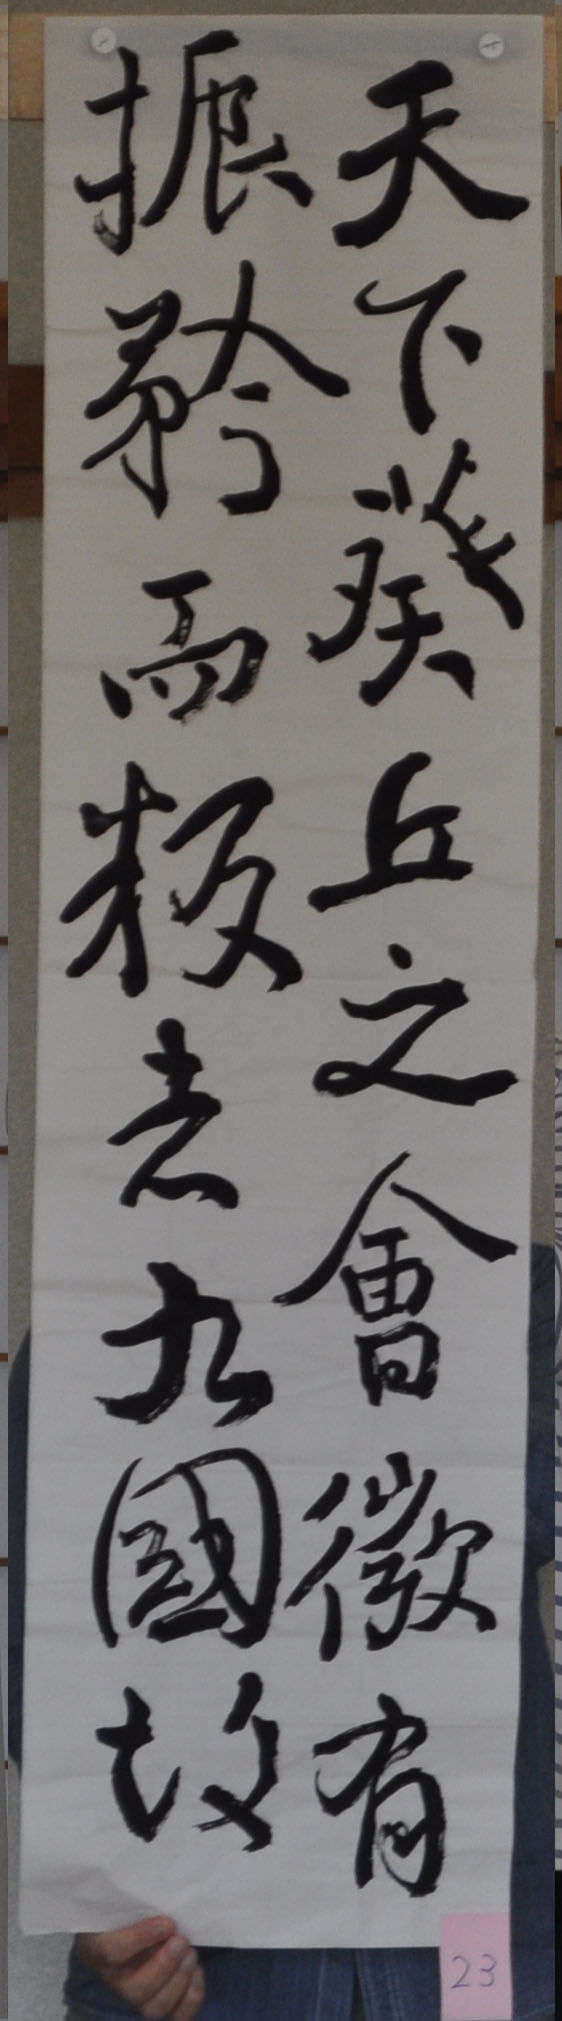 天下葵丘之會微有
振矜而叛者九國故
23